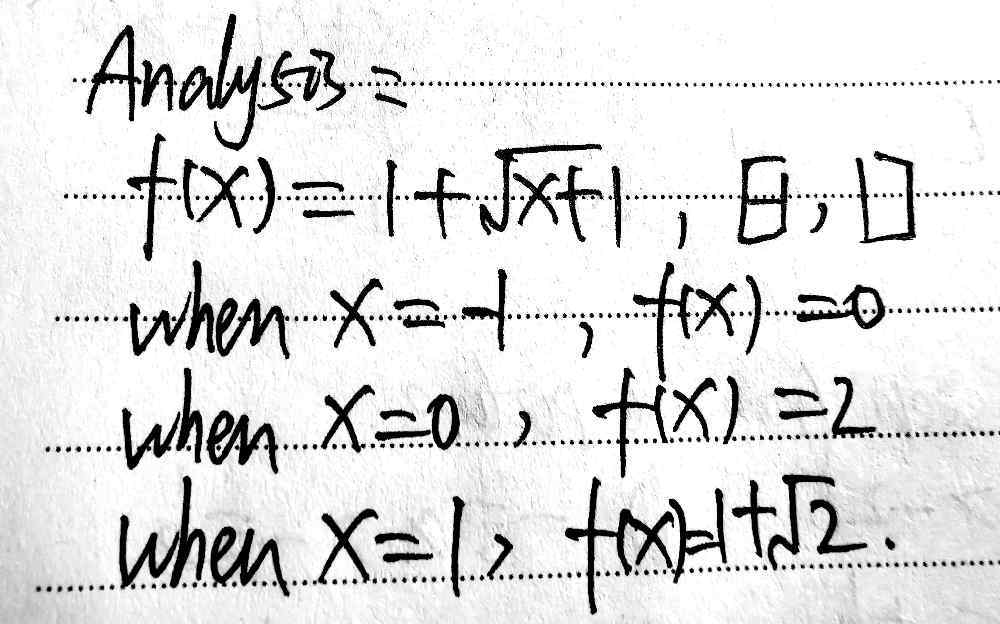 Analysis =
f(x) = 1 + √x+1 , [-1, 1]
when x = -1 , f(x) = 0
when x = 0 , f(x) = 2
when x = 1 , f(x) = 1 + √2 .